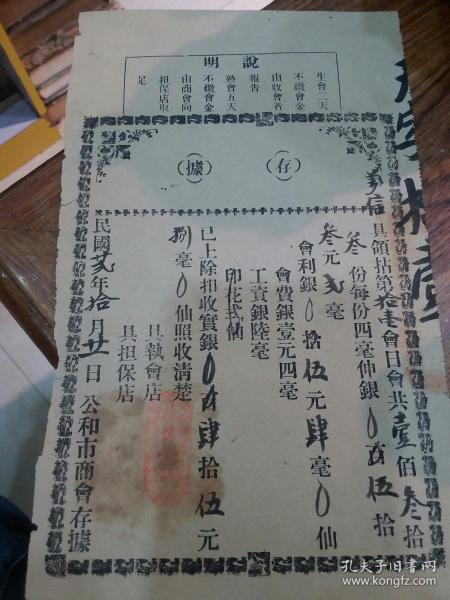 說明
生會二天
不繳會金
由收會者
報告
熟會五天
不繳會金
由商會向
担保店取
足
（存）
（據）
義信 具領拈第拾壹會日會共壹佰叁拾
叁份每份四毫伸銀〇百伍拾
叁元弍毫
會利銀〇拾伍元肆毫〇仙
會費銀壹元四毫
工資銀陸毫
印花弍仙
已上除扣收實銀〇百肆拾伍元
捌毫〇仙照收清楚
具執會店
具担保店
民國弍年拾月廿一日 公和市商會存據
孔夫子旧书网
www.kongfz.com